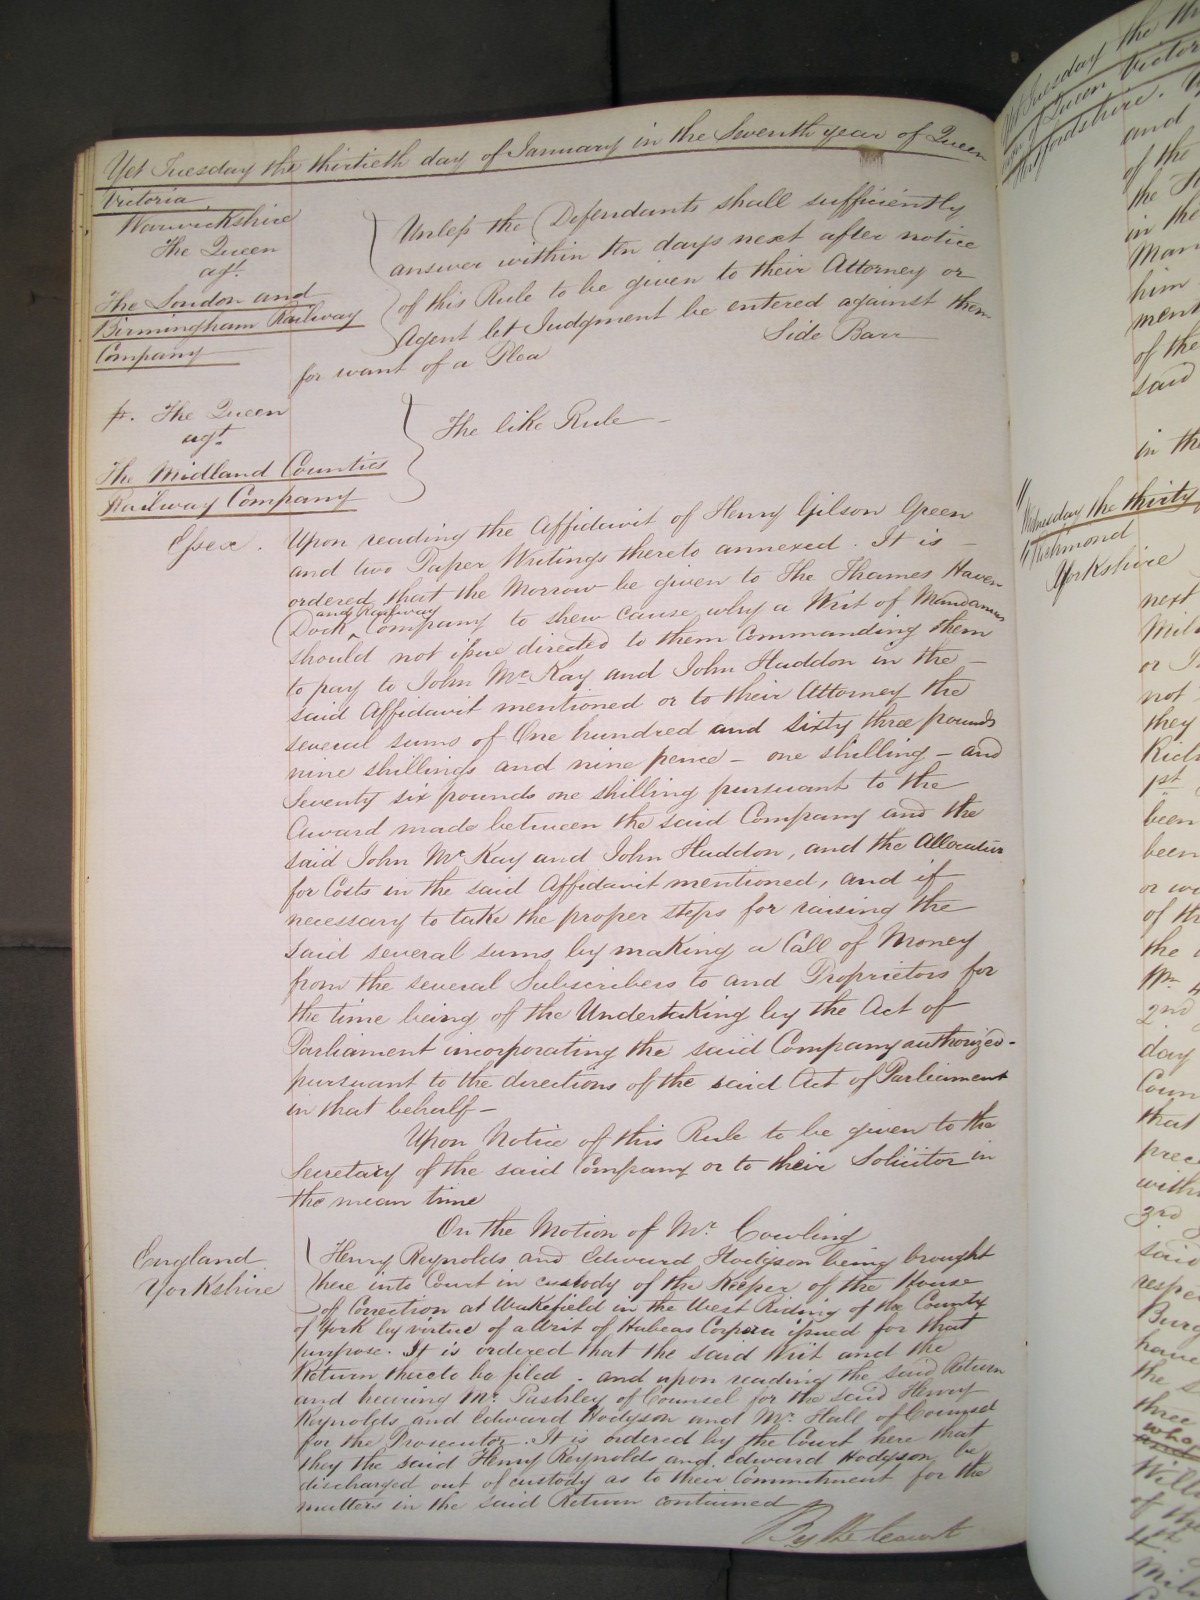 Yet Tuesday the thirtieth day of January in the Seventh year of Queen
Victoria
Warwickshire
The Queen
agt.
The London and
Birmingham Railway
Company
Unless the Defendants shall sufficiently
answer within ten days next after notice
of this Rule to be given to their Attorney or
Agent let Judgment be entered against them
for want of a Plea
Side Barr
The Queen
agt.
The Midland Counties
Railway Company
The like Rule –
Essex.
Upon reading the Affidavit of Henry Gilson Green
and two Paper Writings thereto annexed. It is –
ordered that the Morrow be given to The Thames Haven
and Railway
Dock ‸ Company to shew cause why a Writ of Mandamus
should not issue directed to them Commanding them
to pay to John Mc.Kay and John Haddon in the –
said Affidavit mentioned or to their Attorney the
several sums of One hundred and sixty three pounds
nine shillings and nine pence – one shilling – and
Seventy six pounds one shilling pursuant to the
Award made between the said Company and the
said John Mc.Kay and John Haddon, and the Allocatur
for Costs in the said Affidavit mentioned, and if
necessary to take the proper steps for raising the
said several sums by making a Call of Money
from the several Subscribers to and Proprietors for
the time being of the Undertaking by the Act of
Parliament incorporating the said Company authorized –
pursuant to the directions of the said Act of Parliament
in that behalf –
Upon Notice of this Rule to be given to the
Secretary of the said Company or to their Solicitor in
the mean time
On the Motion of Mr. Cowling
England
Yorkshire
Henry Reynolds and Edward Hodgson being brought
here into Court in custody of the Keeper of the House
of Correction at Wakefield in the West Riding of the County
of York by virtue of a Writ of Habeas Corpora issued for that
purpose. It is ordered that the said Writ and the
Return thereto be filed – and upon reading the said Return
and hearing Mr. Pashley of Counsel for the said Henry
Reynolds and Edward Hodgson and Mr. Hall of Counsel
for the Prosecutor. It is ordered by the Court here that
they the said Henry Reynolds and Edward Hodgson be
discharged out of custody as to their Commitment for the
matters in the said Return contained
By the Court
Yet Tuesday the
of Queen Victor
and
of the
in the
Man
him
ment
of the
said
in the
Wednesday the thirty
Richmond
Yorkshire
next
or
not
they
1st
been
been
of th
the
2nd
day
Coun
that
prec
with
3rd
said
respe
Burg
have
the
three
who
of the
4.